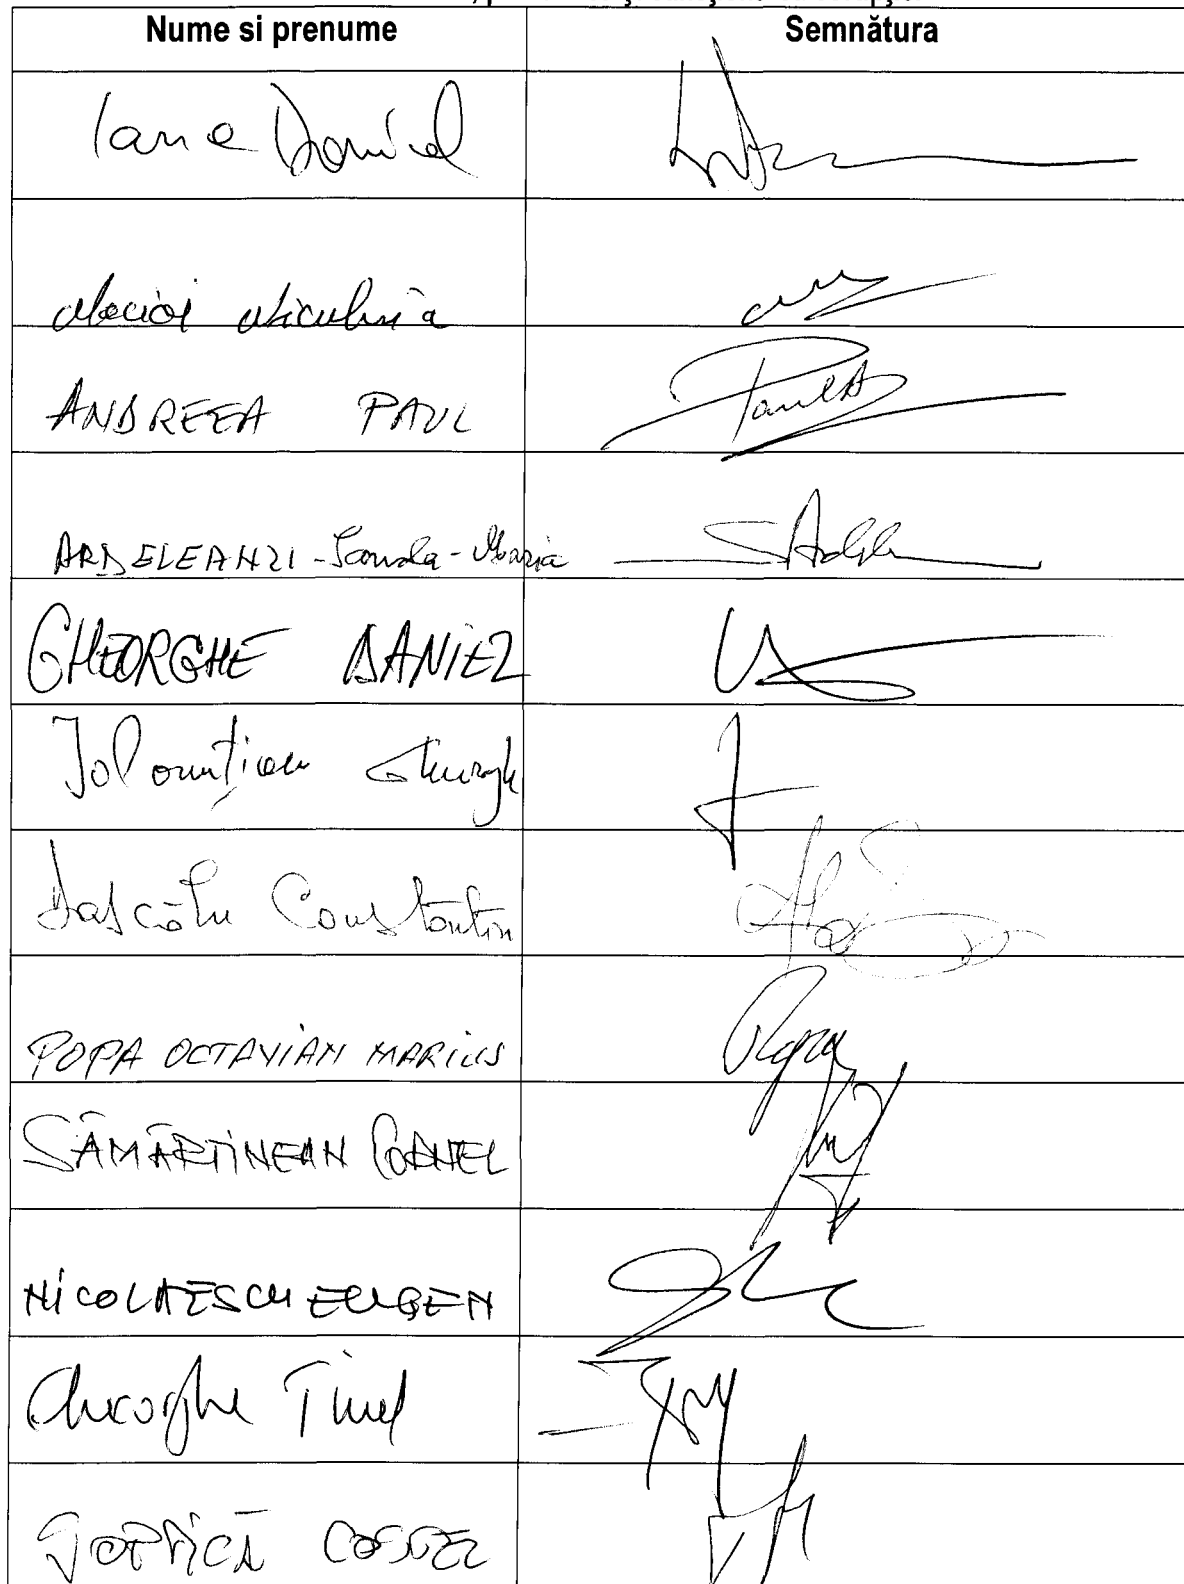 Nume si prenume Semnătura
Iane Daniel
Mocioi Niculina
ANDREEA PAUL
ARDELEANU - Sanda - Maria
GHEORGHE DANIEL
Ialomițianu Gheorghe
Dascălu Constantin
POPA OCTAVIAN MARIUS Popa
SĂMĂRTINEAN CORNEL
NICOLAESCU EUGEN
Gheorghe Tinel
COSTEL